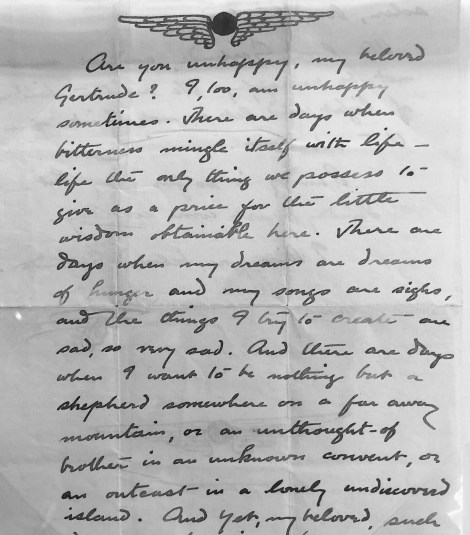 Are you unhappy, my beloved
Gertrude? I, too, am unhappy
sometimes. There are days when
bitterness mingle itself with life –
life the only thing we possess to
give as a price for the little
wisdom obtainable here. There are
days when my dreams are dreams
of hunger and my songs are sighs,
and the things I try to create are
sad, so very sad. And there are days
when I want to be nothing but a
shepherd somewhere on a far away
mountain, or an unthought-of
brother in an unknown convent, or
an outcast in a lonely undiscovered
island. And yet, my beloved, such